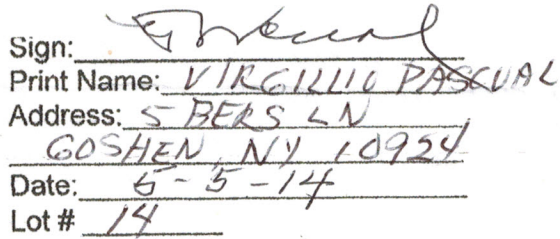 Sign:
Print Name: VIRGILLIO PASCUAL
Address: 5 BERS LN
GOSHEN, NY 10924
Date: 5-5-14
Lot # 14